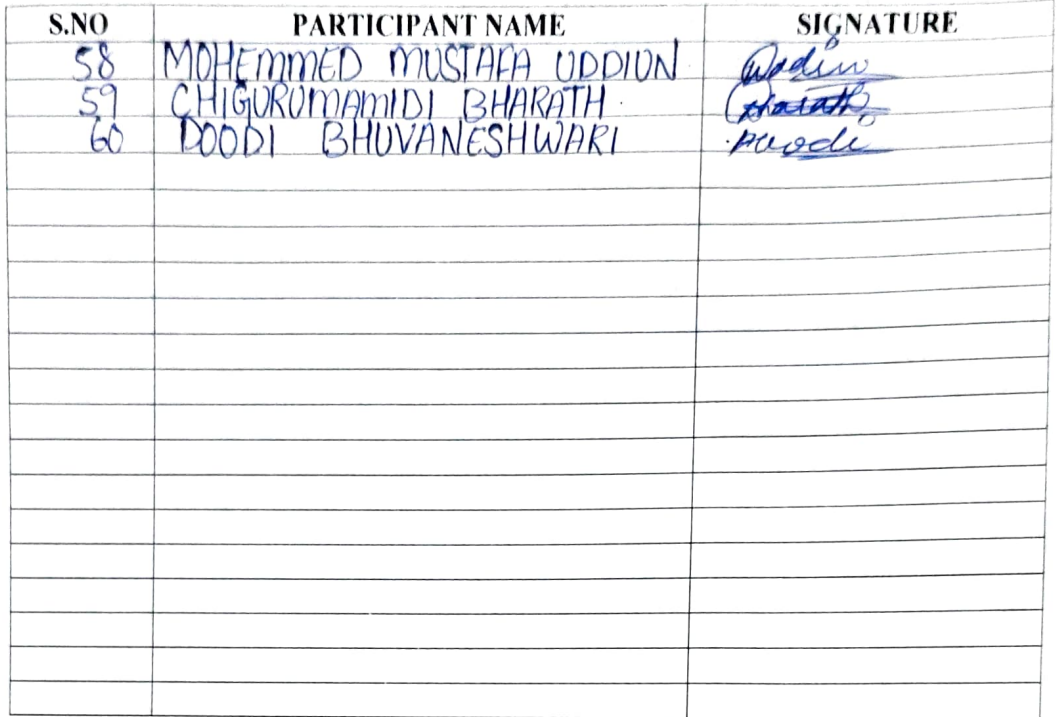 S.NO PARTICIPANT NAME SIGNATURE
58 MOHEMMED MUSTAFA UDDIUN Uddin
59 CHIGURUMAMIDI BHARATH. Bharath
60 DOODI BHUVANESHWARI